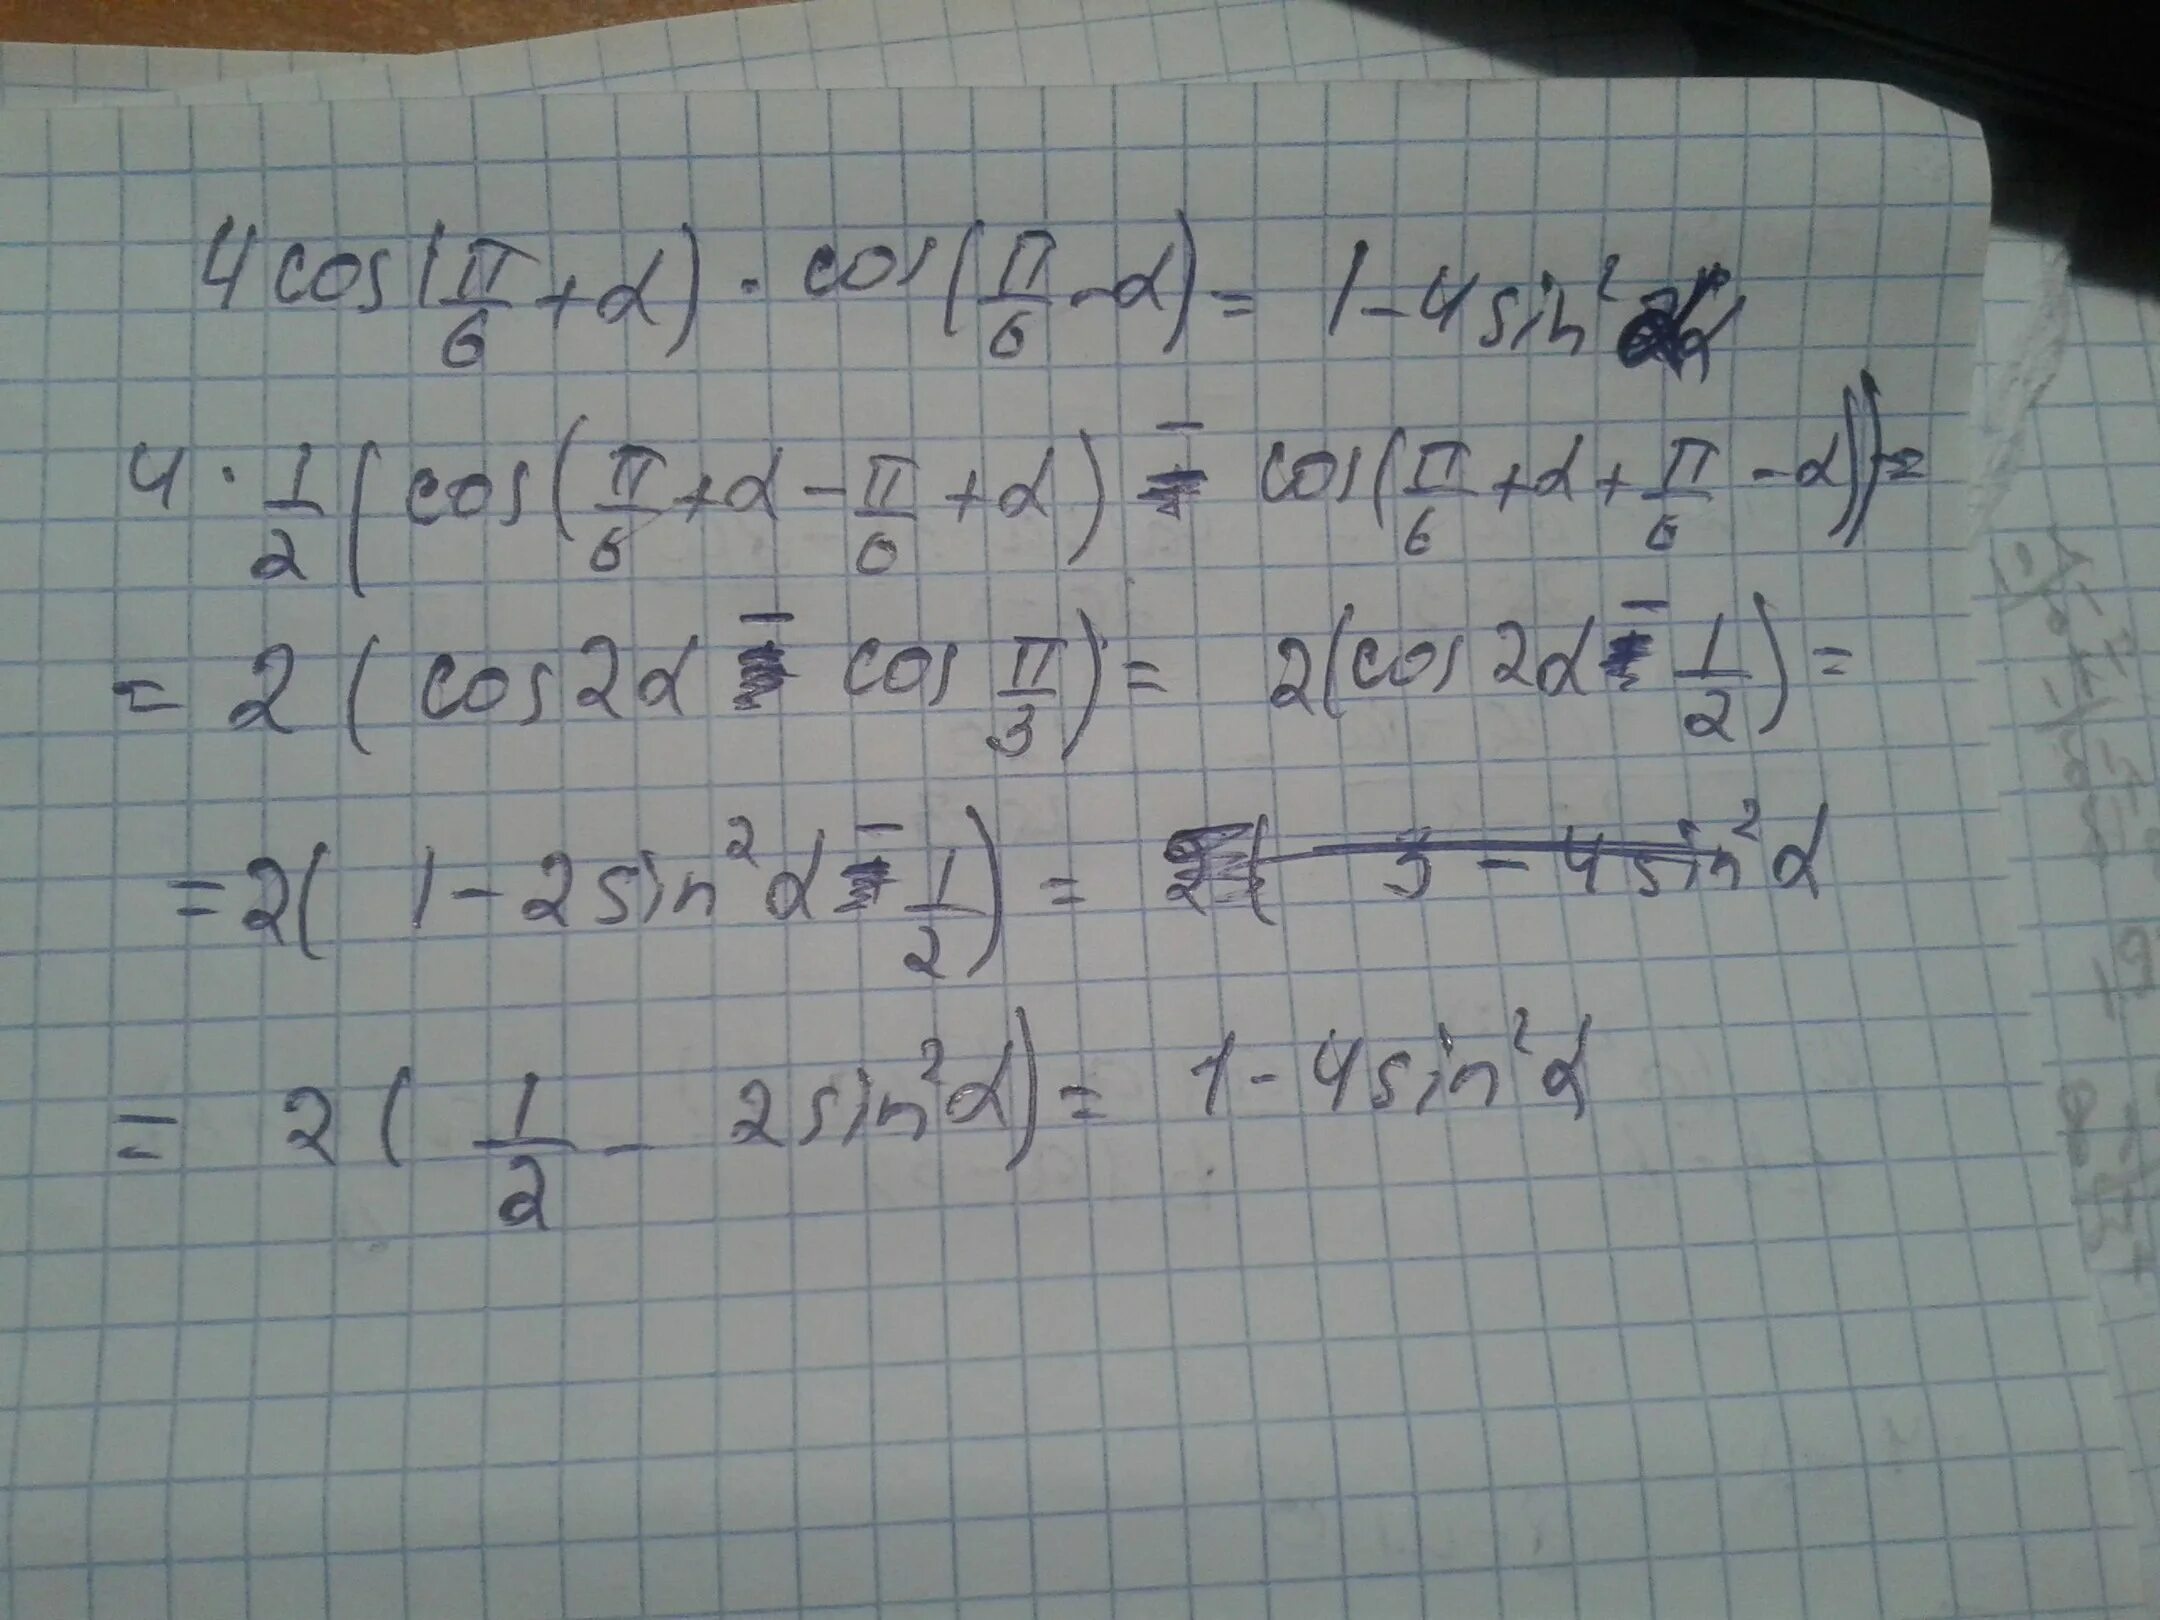 4cos(π/6 + α) · cos(π/6 - α) = 1 - 4sin² α
4 · 1/2 (cos(π/6 + α - π/6 + α) - cos(π/6 + α + π/6 - α)) =
= 2 (cos 2α - cos π/3) = 2(cos 2α - 1/2) =
= 2( 1 - 2sin²α - 1/2) = 2( 3 - 4sin²α
= 2 ( 1/2 - 2sin²α) = 1 - 4sin²α